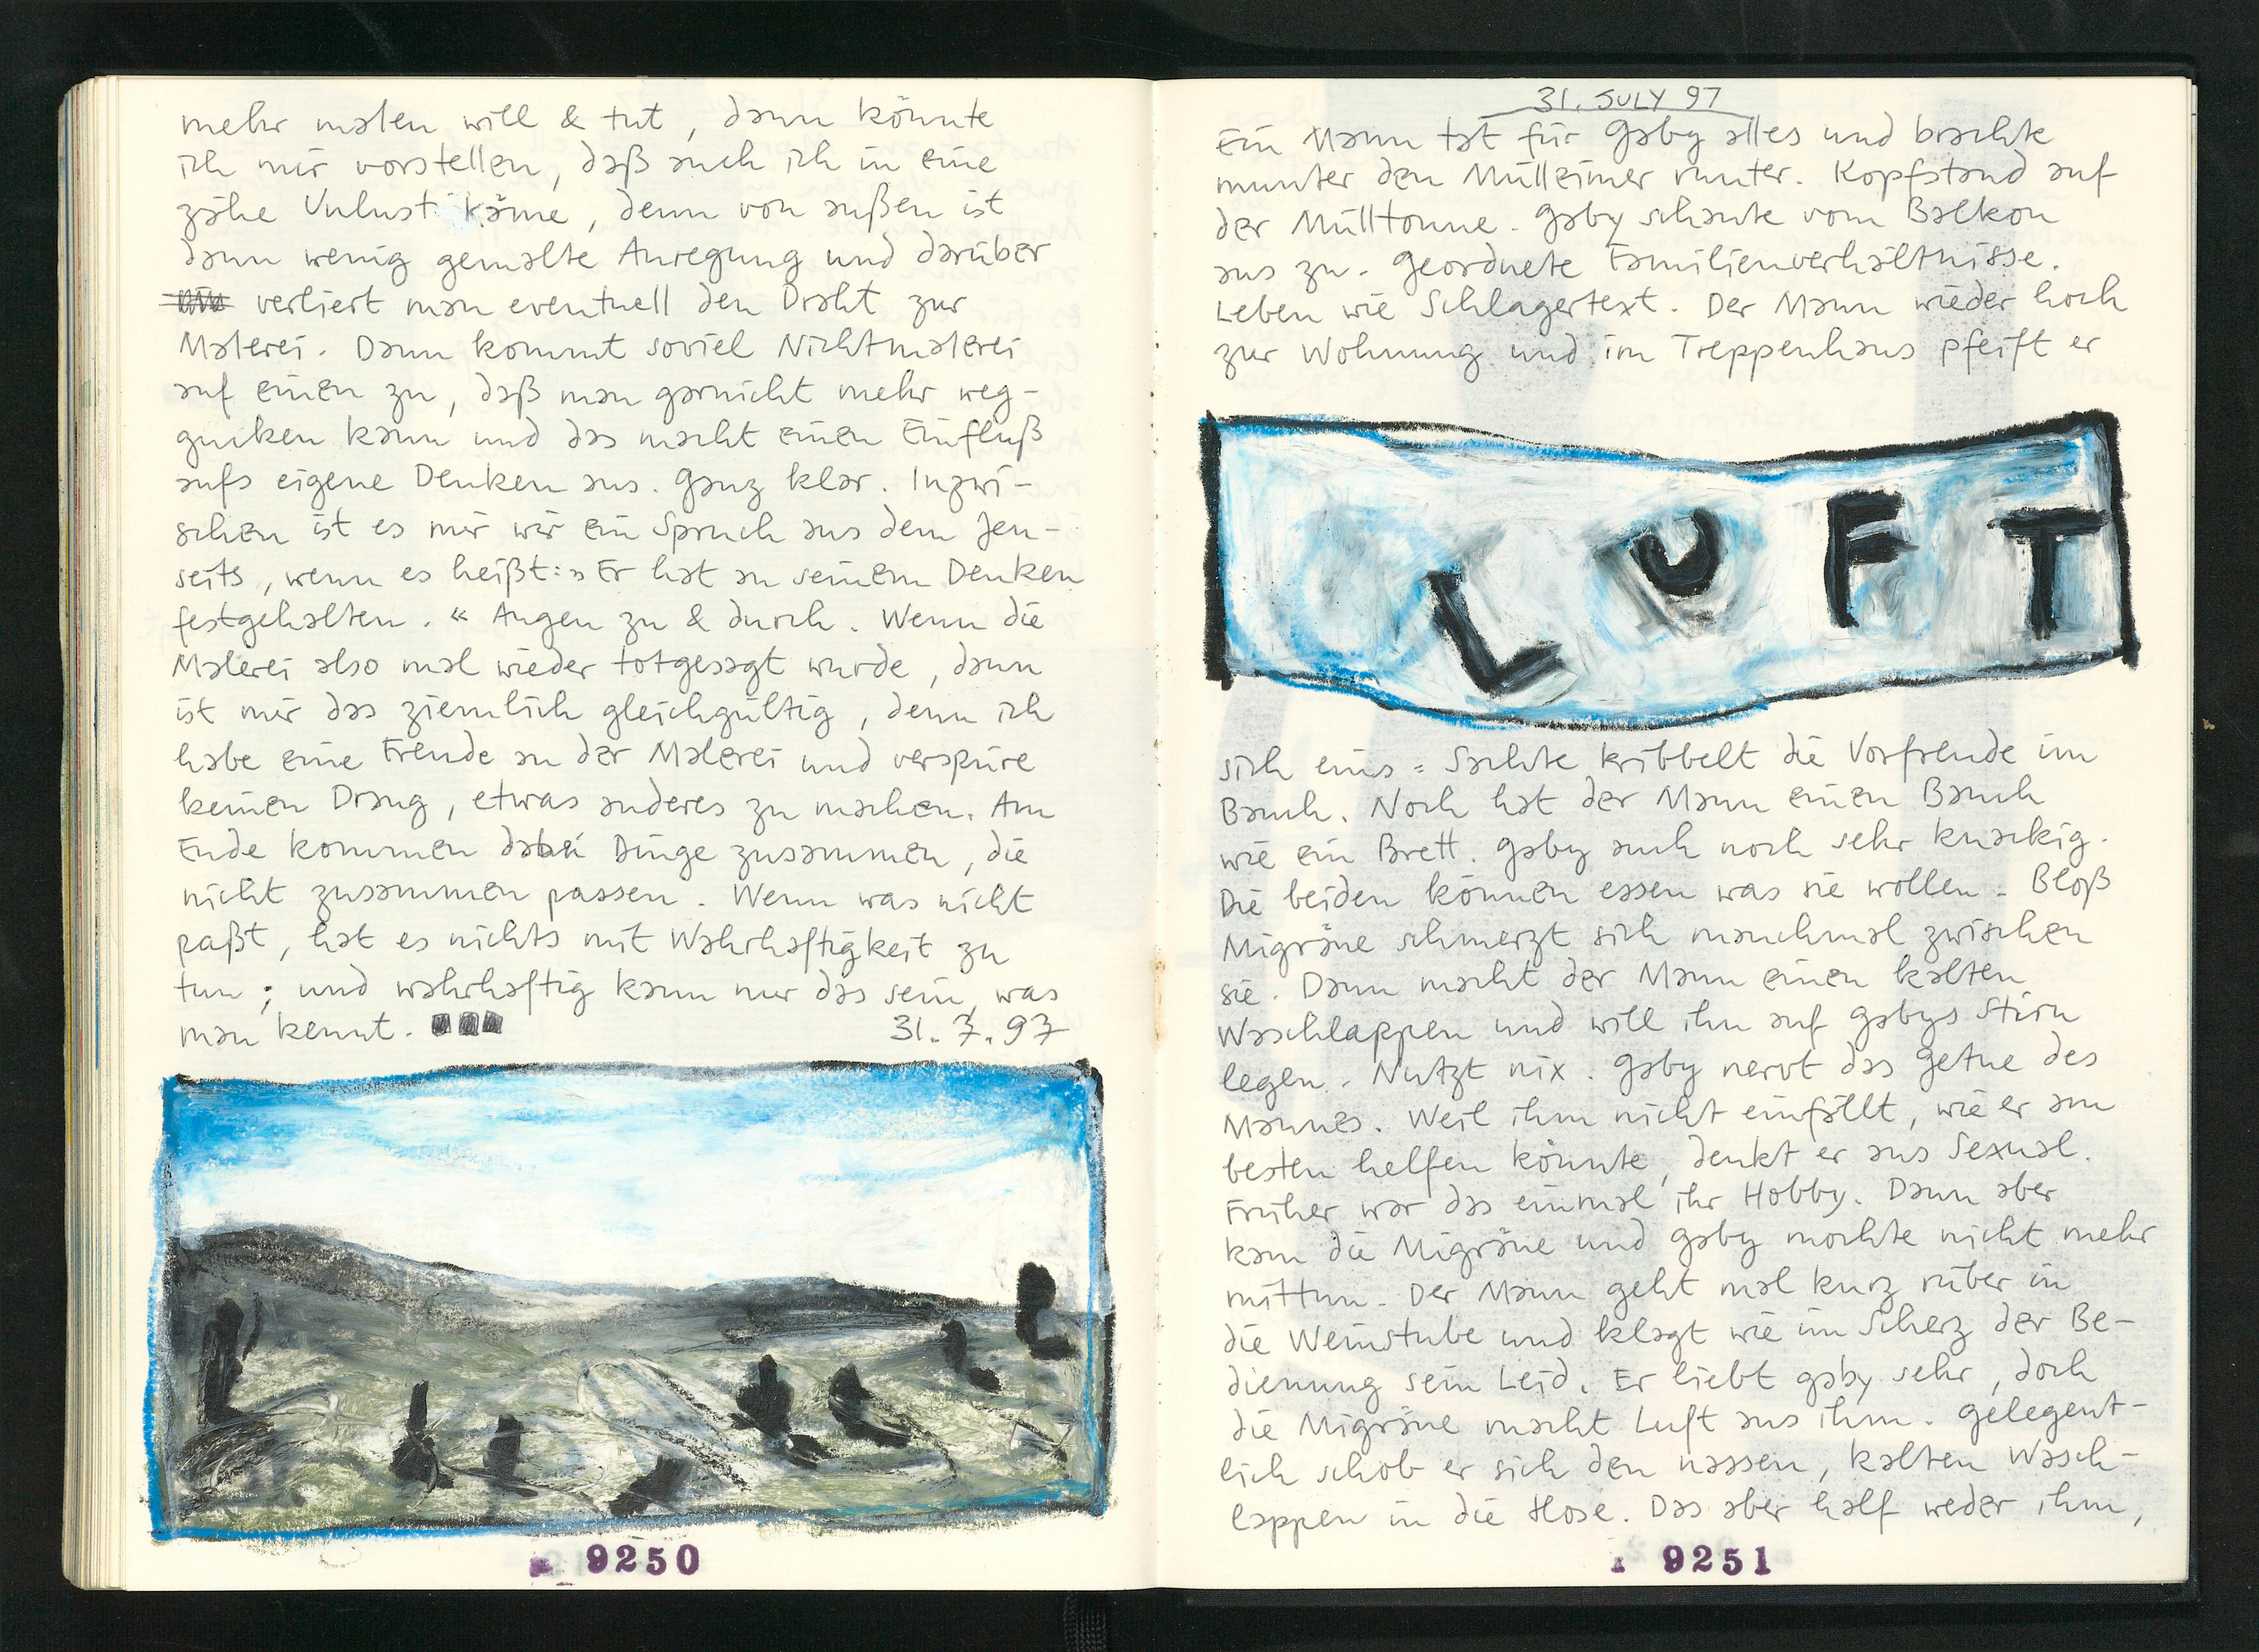 mehr malen will & tut, dann könnte
ich mir vorstellen, daß auch ich in eine
zähe Unlust käme, denn von außen ist
dann wenig gemalte Anregung und darüber
verliert man eventuell den Draht zur
Malerei. Dann kommt soviel Nichtmalerei
auf einen zu, daß man garnicht mehr weg-
gucken kann und das macht einen Einfluß
aufs eigene Denken aus. Ganz klar. Inzwi-
schen ist es mir wie ein Spruch aus dem Jen-
seits, wenn es heißt: »Er hat an seinem Denken
festgehalten.« Augen zu & durch. Wenn die
Malerei also mal wieder totgesagt wurde, dann
ist mir das ziemlich gleichgültig, denn ich
habe eine Freude an der Malerei und verspüre
keinen Drang, etwas anderes zu machen. Am
Ende kommen dabei Dinge zusammen, die
nicht zusammen passen. Wenn was nicht
paßt, hat es nichts mit Wahrhaftigkeit zu
tun; und wahrhaftig kann nur das sein, was
man kennt. 31.7.97
9250
31. JULY 97
Ein Mann tat für Gaby alles und brachte
munter den Mülleimer runter. Kopfstand auf
der Mülltonne. Gaby schaute vom Balkon
aus zu. Geordnete Familienverhältnisse.
Leben wie Schlagertext. Der Mann wieder hoch
zur Wohnung und im Treppenhaus pfeift er
LUFT
sich eins: Sachte kribbelt die Vorfreude im
Bauch. Noch hat der Mann einen Bauch
wie ein Brett. Gaby auch noch sehr knackig.
Die beiden können essen was sie wollen. Bloß
Migräne schmerzt sich manchmal zwischen
sie. Dann macht der Mann einen kalten
Waschlappen und will ihn auf Gabys Stirn
legen. Nutzt nix. Gaby nervt das Getue des
Mannes. Weil ihm nicht einfällt, wie er am
besten helfen könnte, denkt er ans Sexual.
Früher war das einmal ihr Hobby. Dann aber
kam die Migräne und Gaby mochte nicht mehr
mittun. Der Mann geht mal kurz rüber in
die Weinstube und klagt wie im Scherz der Be-
dienung sein Leid. Er liebt Gaby sehr, doch
die Migräne macht Luft aus ihm. Gelegent-
lich schob er sich den nassen, kalten Wasch-
lappen in die Hose. Das aber half weder ihm,
9251